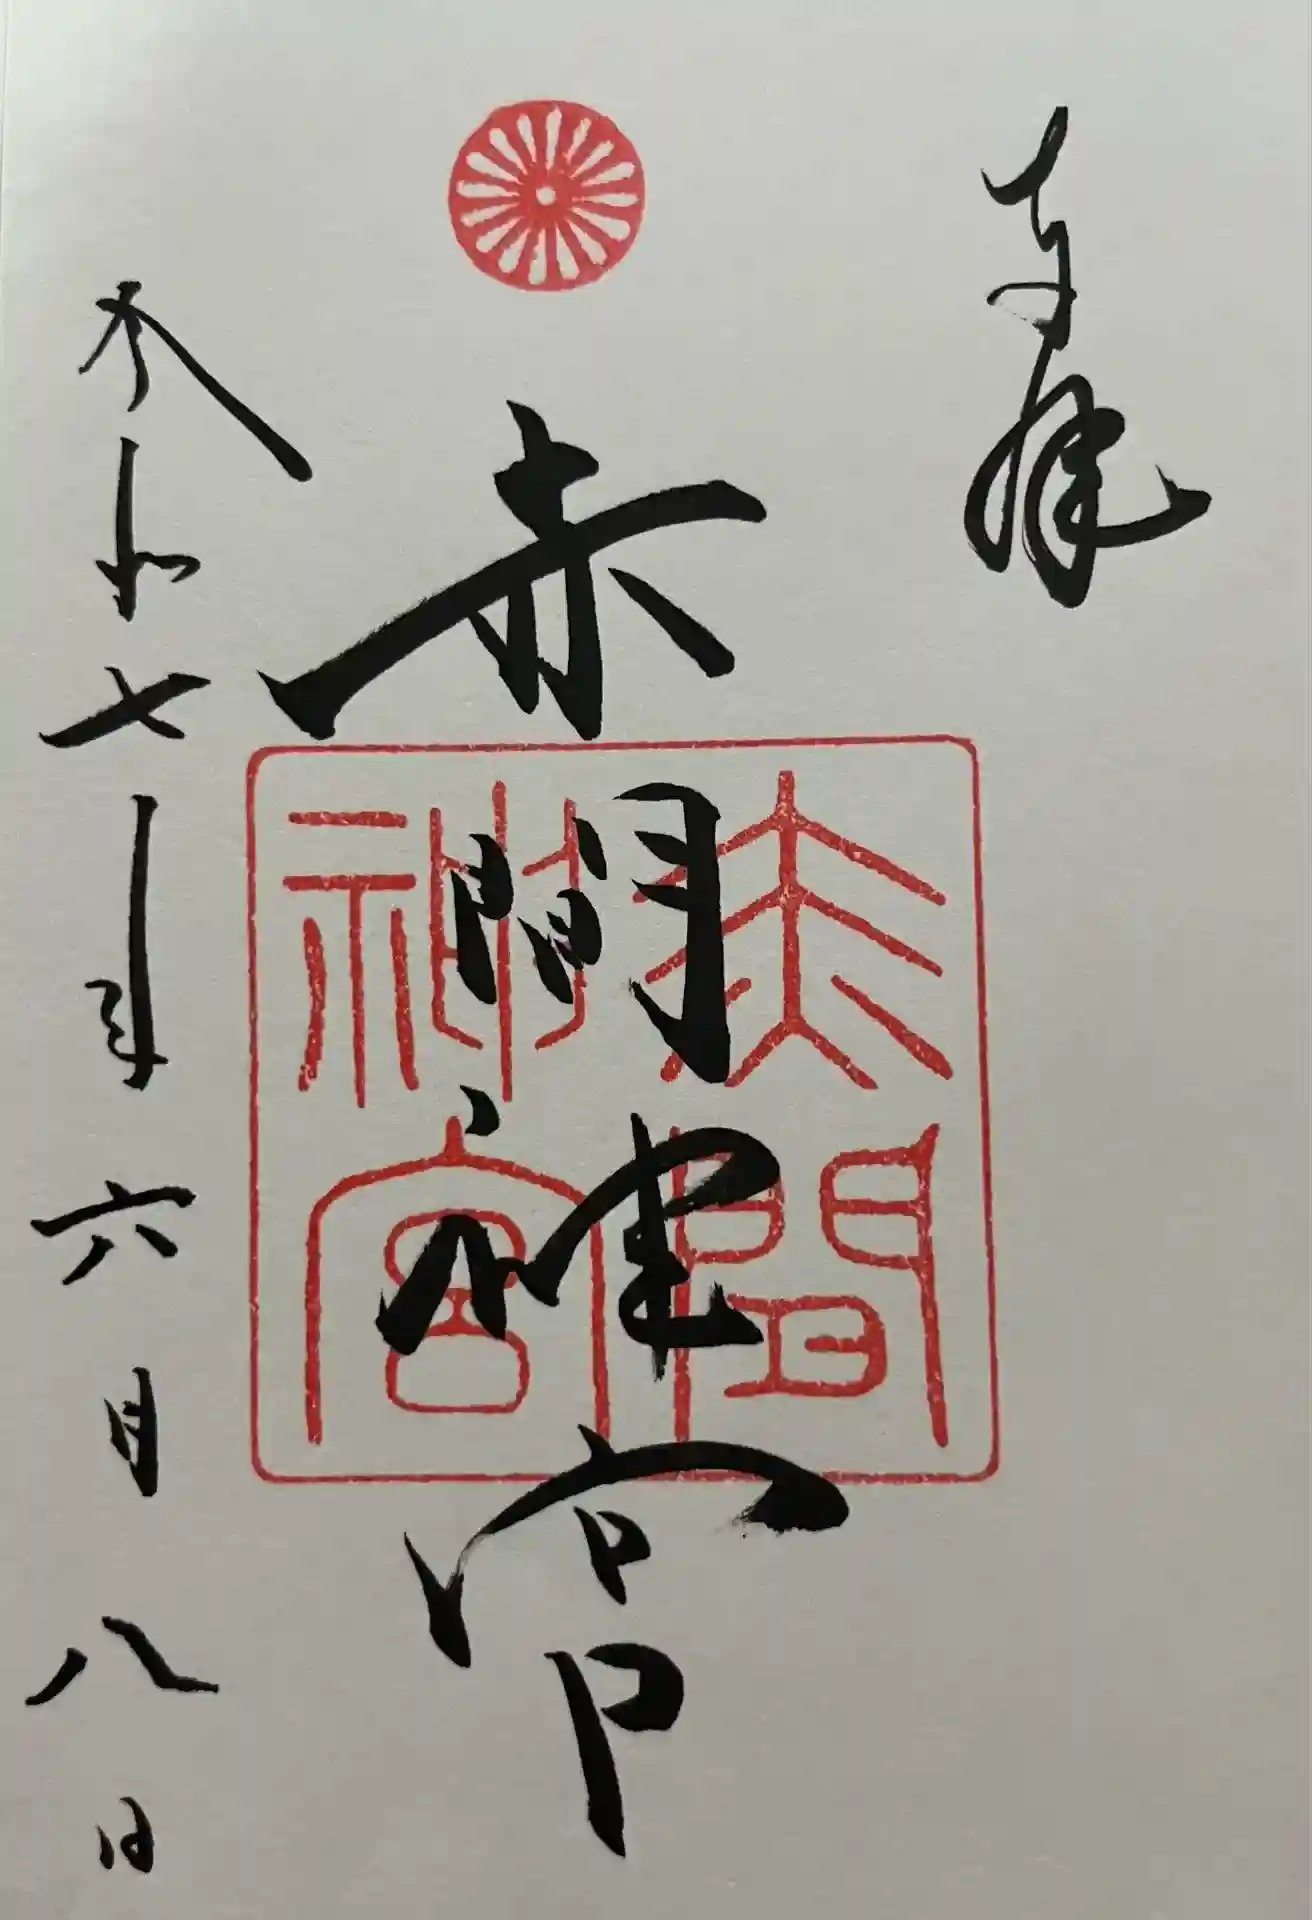 奉拝
赤間神宮
赤間神宮
令和七年六月八日